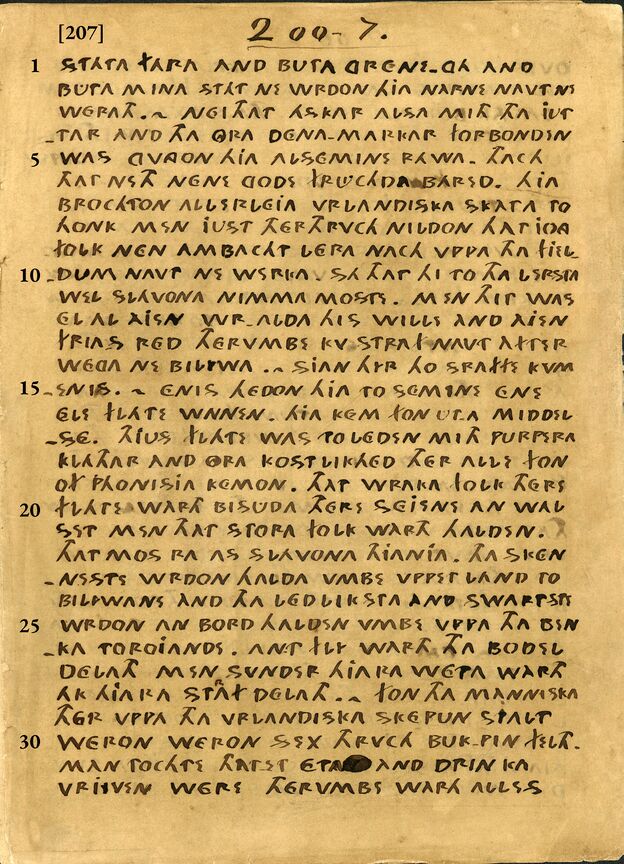 [207]
200-7.
1 STATA FARA AND BUTA GRENE-GA AND
BUTA MINA STAT NE WRDON HIA NARNE NAVT NE
WERATH. ~ NEI THAT ASKAR ALSA MITH THA IUT
-TAR AND THA ORA DENA-MARKAR FORBONDEN
5 WAS GVNGON HIA ALSEMINE RAWA. THACH
THAT NETH NENE GODE FRUCHDA BARED. HIA
BROCHTON ALLERLEIA VRLANDISKA SKATA TO
HONK MEN IUST THERTHRVCH NILDON THAT IOGA
FOLK NEN AMBACHT LERA NACH VPPA THA FIEL
10 -DUM NAVT NE WERKA. SA THAT HI TO THA LERSTA
WEL SLAVONA NIMMA MOSTE. MEN THIT WAS
EL AL AIEN WR-ALDA HIS WILLE AND AIEN
FRIAS RED THERVMBE KV STRAF NAVT AFTER
WEGA NE BILIWA .~ SIAN HIR HO STRAFFE KVM
15 -EN IS. ~ ENIS HEDON HIA TO SEMINE ENE
ELE FLATE WNNEN. HIA KEM FON UTA MIDDEL
-SE. THIUS FLATE WAS TO LEDEN MITH PURPERA
KLATHAR AND ORA KOSTLIKHED THER ALLE FON
OF PHONISIA KEMON. THAT WRAKA FOLK THERE
20 FLATE WARTH BISUDA THERE SEIENE AN WAL
SET MEN THAT STORA FOLK WARTH HALDEN.
THAT MOS RA AS SLAVONA THIANIA. THA SKEN
-NESTE WRDON HALDA VMBE VPPET LAND TO
BILIWANE AND THA LEDLIKSTA AND SWARTSTE
25 WRDON AN BORD HALDEN VMBE VPPA THA BEN
-KA TOROIANDE. ANT FLY WARTH THA BODEL
DELATH MEN SVNDER HIARA WETA WARTH
AK HIARA STRAF DELATH .~ FON THA MANNISKA
THER VPPA THA VRLANDISKA SKEPUN STALT
30 WERON WERON SEX THRVCH BUK-PIN FELTH.
MAN TOCHTE THATET ETA AND DRINKA
VRIIVEN WERE THERVMBE WARTH ALLES